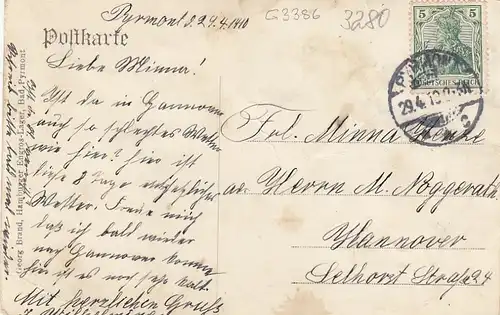 Pyrmont d. 29.4.1910
G3386
3280
Postkarte
5
DEUTSCHES REICH
29.4.10
Liebe Minna!
Ist da in Hannover
auch so schlechtes Wetter
wie hier? Hier ist
diese 8 Tage entsetzliches
Wetter. Freue mich
daß ich bald wieder
nach Hannover komme
hier ist es noch sehr kalt.
Mit herzlichen Gruß
Frl. Minna
an Herrn M. Noggerath
Hannover
Selhorst Straße 24
Georg Brand, Hamburger Engros-Lager, Bad Pyrmont